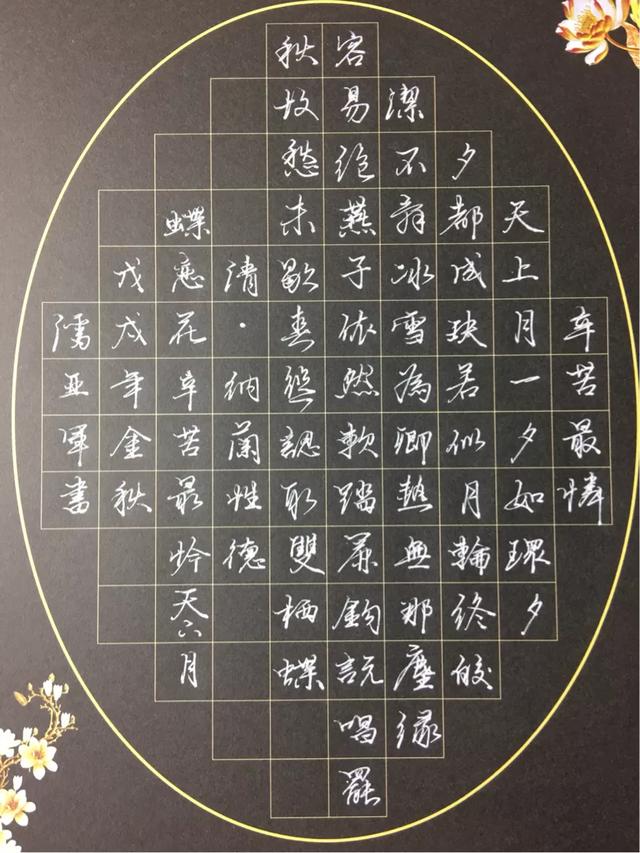 辛苦最憐
天上月一夕如環夕
夕都成玦若似月輪終皎
潔不辞冰雪為卿熱無那塵緣
容易绝燕子依然軟踏簾鈎説唱罷
秋坟愁未歇春叢認取雙栖蝶
清·納蘭性德
蝶恋花辛苦最怜天上月
戊戌年金秋
亚軍書